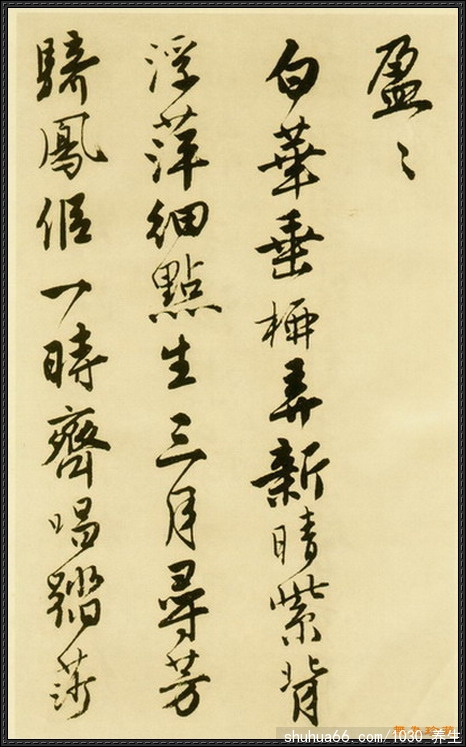 盈〻
白華垂柳弄新晴紫背
浮萍細點生三月尋芳
騎鳳侶一時齊唱踏莎
shuhua66.com/1030 养生